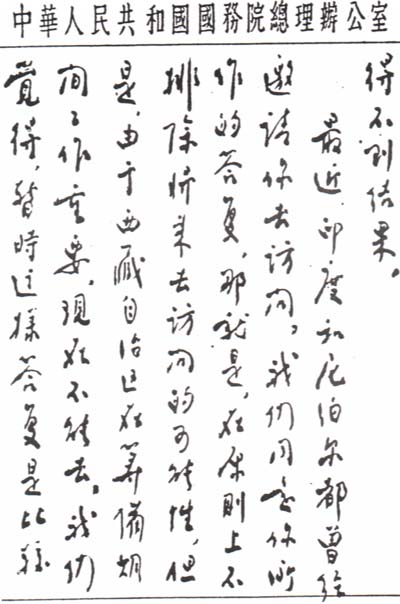 中華人民共和國國務院總理辦公室
得不到结果。
最近印度和尼泊尔都曾经
邀请你去访问，我们同意你所
作的答复，那就是，在原则上不
排除将来去访问的可能性，但
是，由于西藏自治区在筹備期
间工作重要，现在不能去。我们
觉得，暂時这樣答复是比较